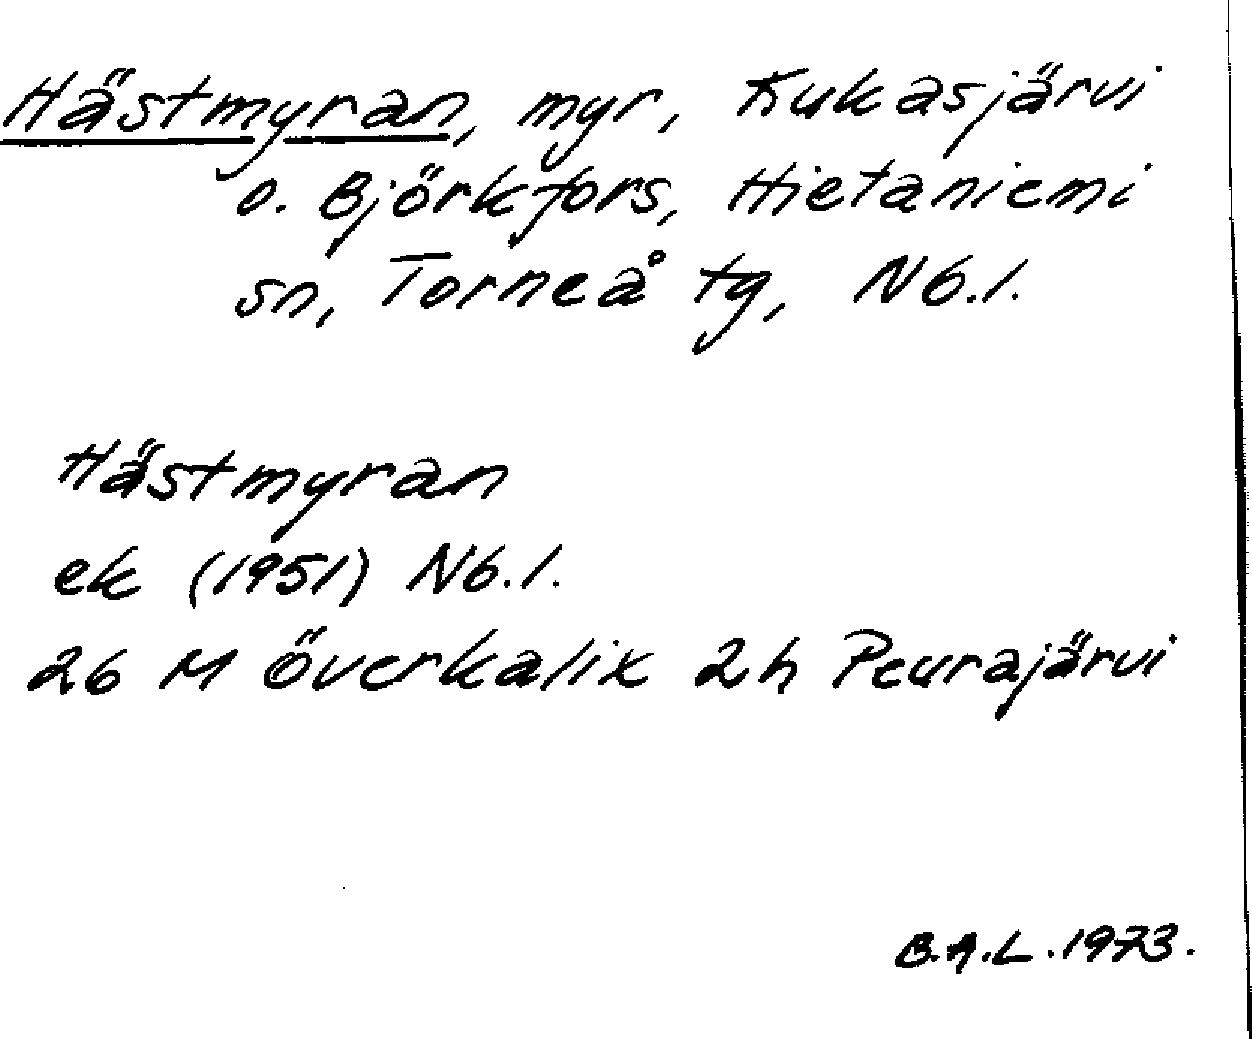 Hästmyran, myr, Kukasjärvi
o. Björkfors, Hietaniemi
sn, Torneå tg, Nb.l.
Hästmyran
ek (1951) Nb.l.
26 M Överkalix 2h Peurajärvi
B.A.L. 1973.